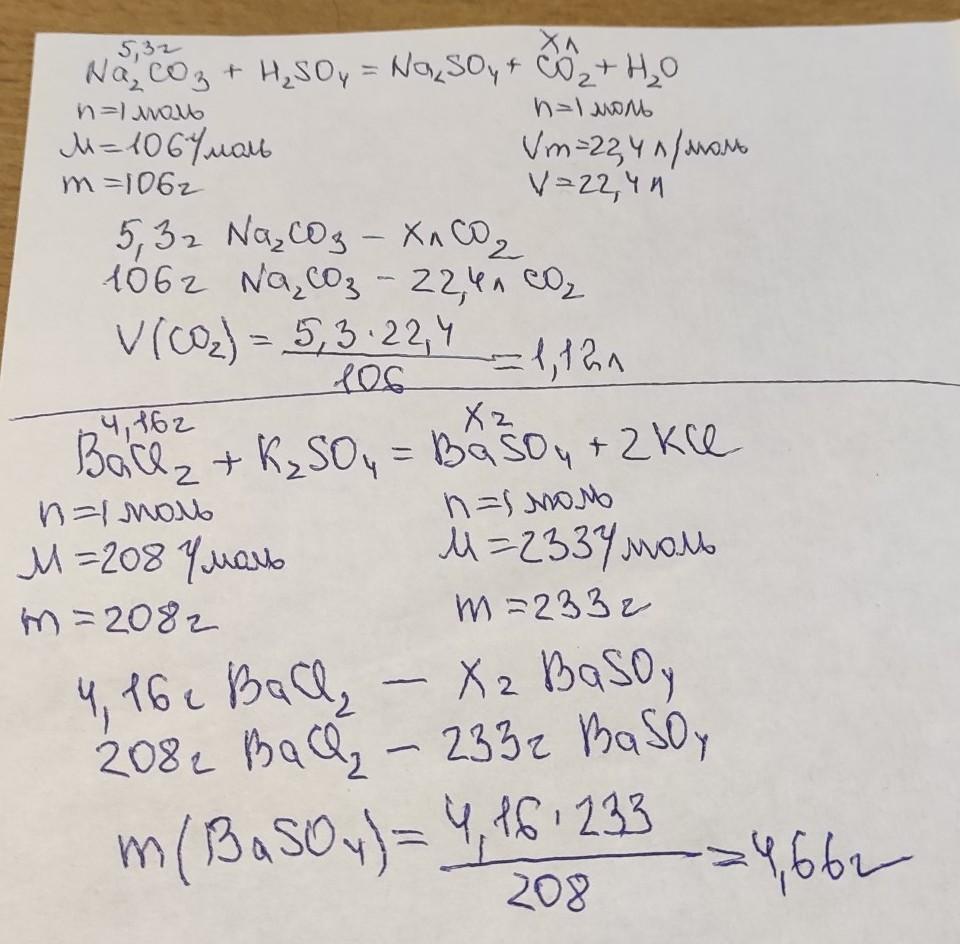 5,3г Xл
Na₂CO₃ + H₂SO₄ = Na₂SO₄ + CO₂ + H₂O
n=1моль n=1моль
M=106г/моль Vm=22,4 л/моль
m=106г V=22,4л
5,3г Na₂CO₃ – XлCO₂
106г Na₂CO₃ – 22,4л CO₂
V(CO₂) = 5,3·22,4 / 106 = 1,12л
4,16г Xг
BaCl₂ + K₂SO₄ = BaSO₄ + 2KCl
n=1моль n=1моль
M=208 г/моль M=233г/моль
m=208г m=233г
4,16г BaCl₂ – Xг BaSO₄
208г BaCl₂ – 233г BaSO₄
m(BaSO₄) = 4,16·233 / 208 = 4,66г